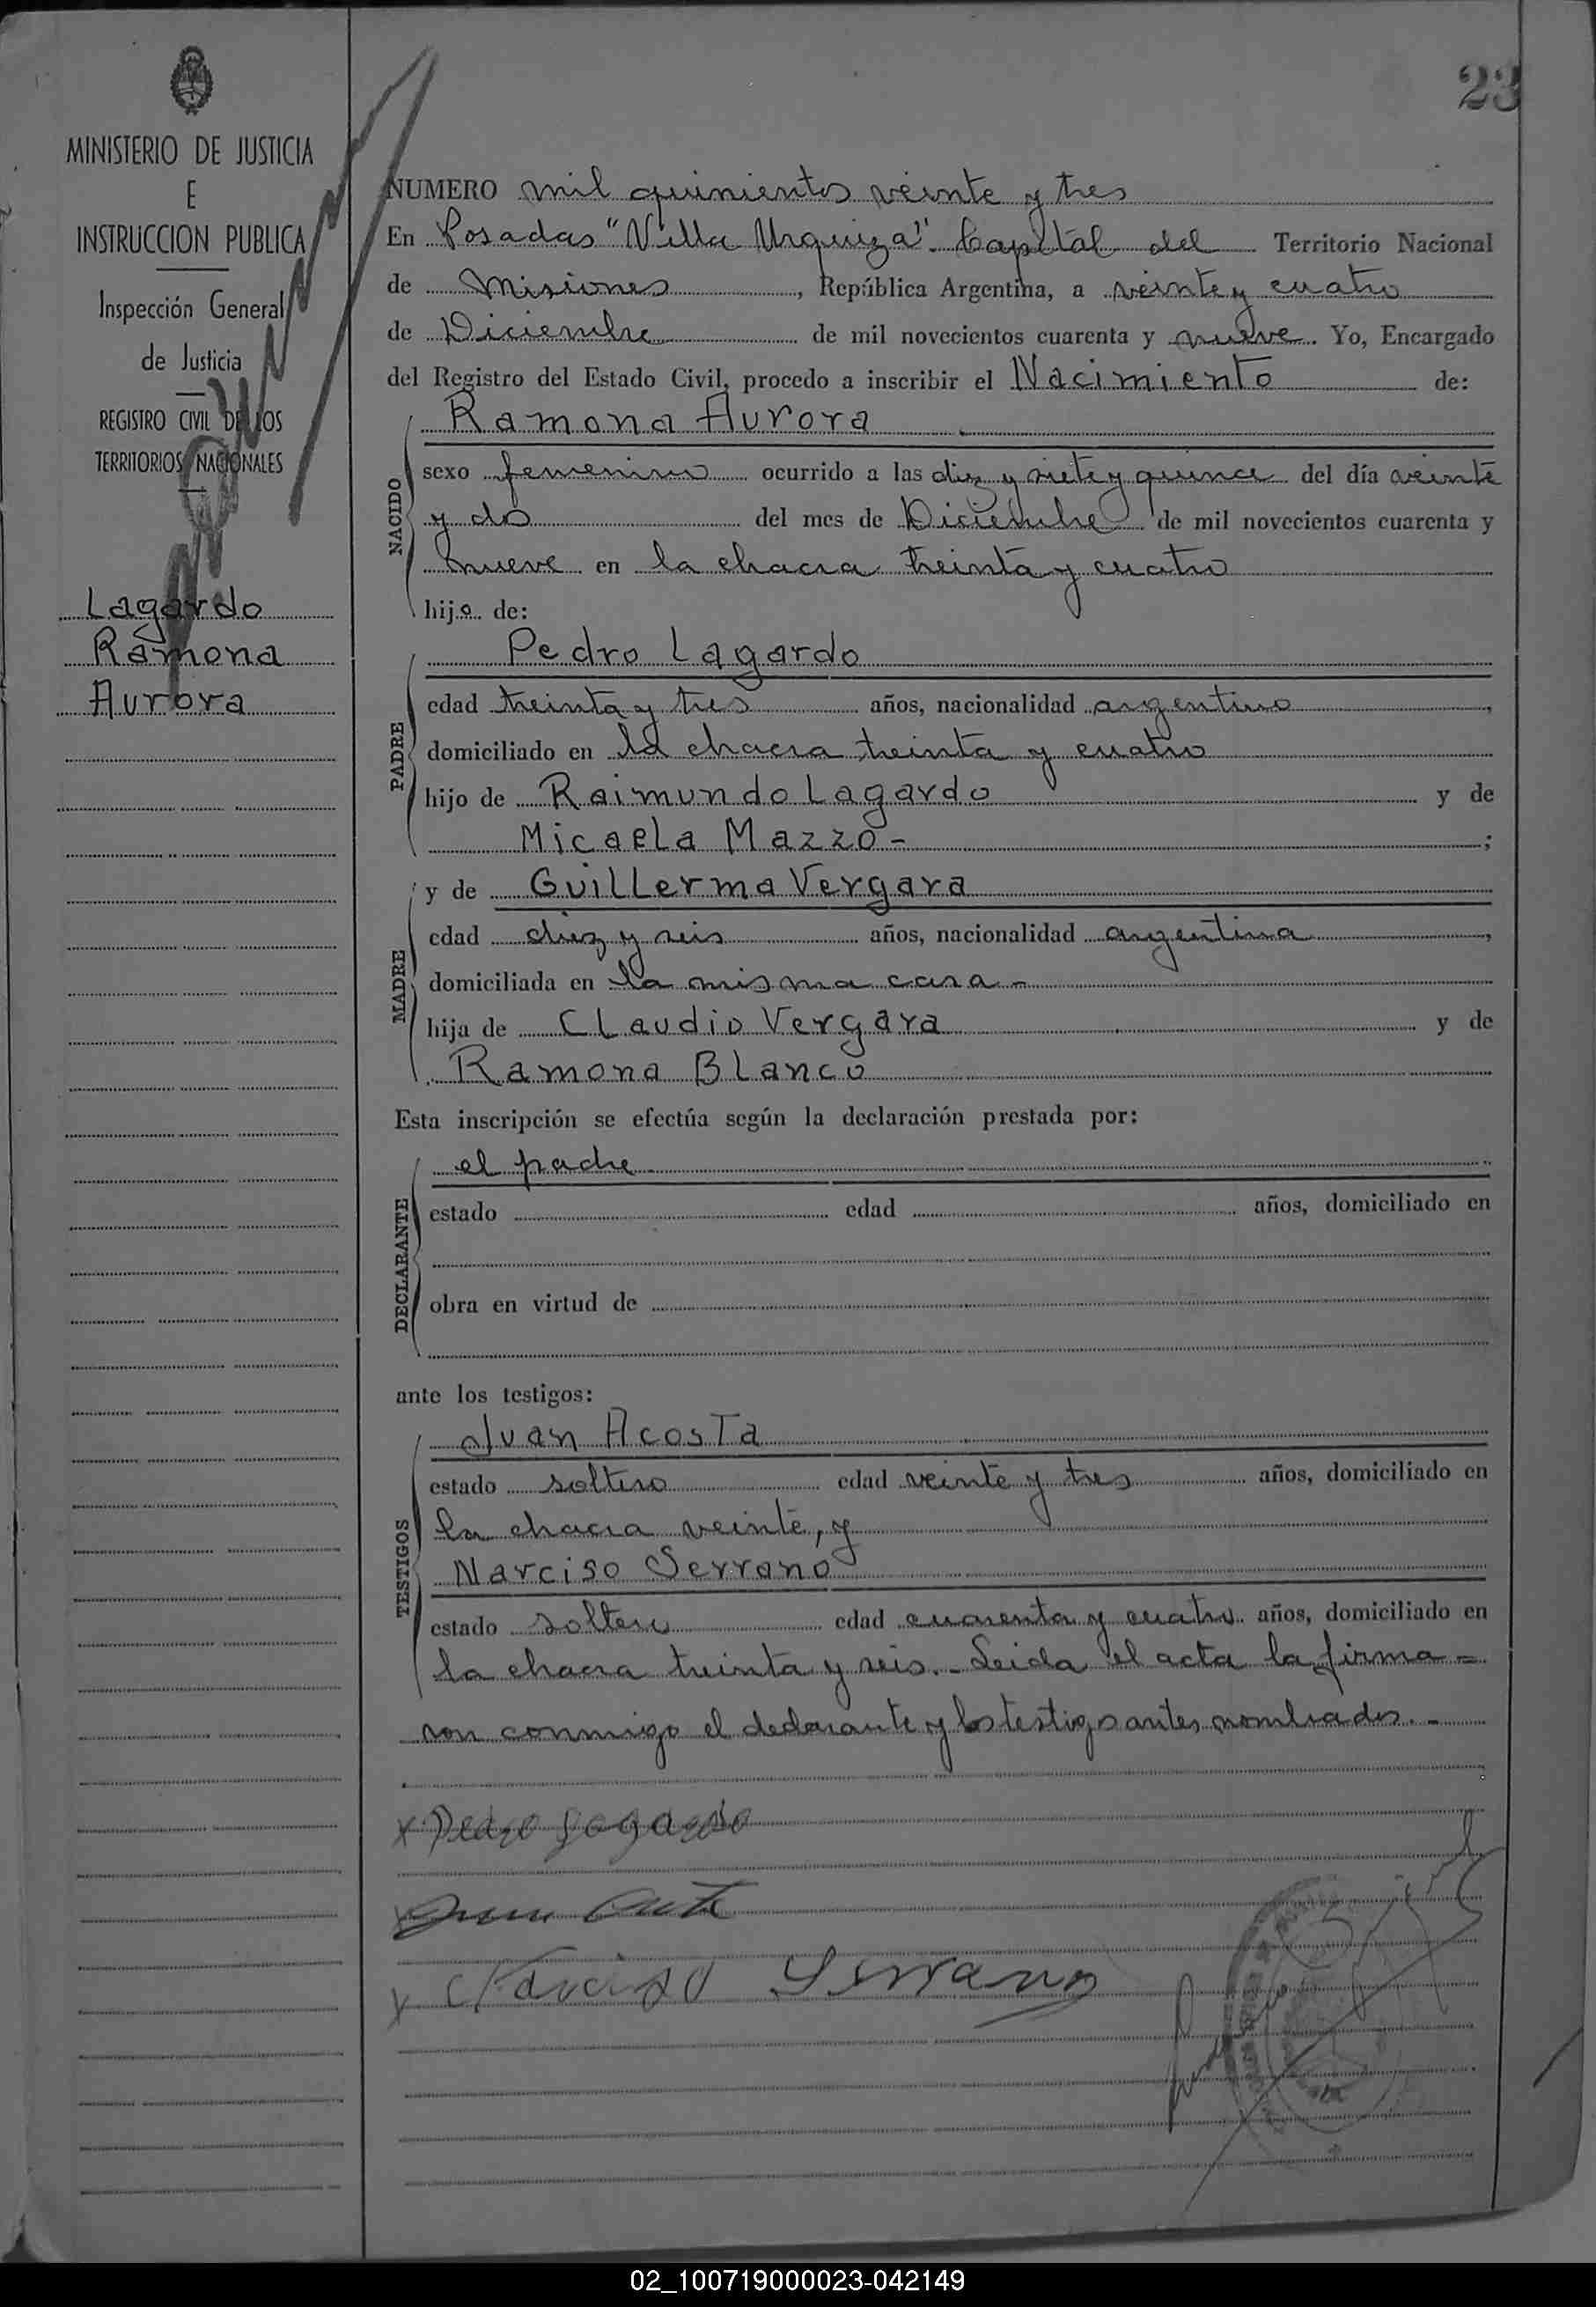 23
MINISTERIO DE JUSTICIA
E
INSTRUCCION PUBLICA
Inspección General
de Justicia
REGISTRO CIVIL DE LOS
TERRITORIOS NACIONALES
Lagardo
Ramona
Aurora
NUMERO mil quinientos veinte y tres
En Posadas "Villa Urquiza". Capital del Territorio Nacional
de Misiones, República Argentina, a veinte y cuatro
de Diciembre de mil novecientos cuarenta y nueve. Yo, Encargado
del Registro del Estado Civil, procedo a inscribir el Nacimiento de:
NACIDO
Ramona Aurora
sexo femenino ocurrido a las diez y siete y quince del día veinte
y dos del mes de Diciembre de mil novecientos cuarenta y
nueve en la chacra treinta y cuatro
hija de:
PADRE
Pedro Lagardo
edad treinta y tres años, nacionalidad argentino,
domiciliado en la chacra treinta y cuatro
hijo de Raimundo Lagardo y de
Micaela Mazzo-;
MADRE
y de Guillerma Vergara
edad diez y seis años, nacionalidad argentina,
domiciliada en la misma casa-
hija de Claudio Vergara y de
Ramona Blanco
Esta inscripción se efectúa según la declaración prestada por:
DECLARANTE
el padre
estado edad años, domiciliado en
obra en virtud de
ante los testigos:
TESTIGOS
Juan Acosta
estado soltero edad veinte y tres años, domiciliado en
la chacra veinte, y
Narciso Serrano
estado soltero edad cuarenta y cuatro años, domiciliado en
la chacra treinta y seis.- Leida el acta la firma=
ron conmigo el declarante y los testigos antes nombrados.-
x Pedro Lagardo
x Narciso Serrano
02_100719000023-042149